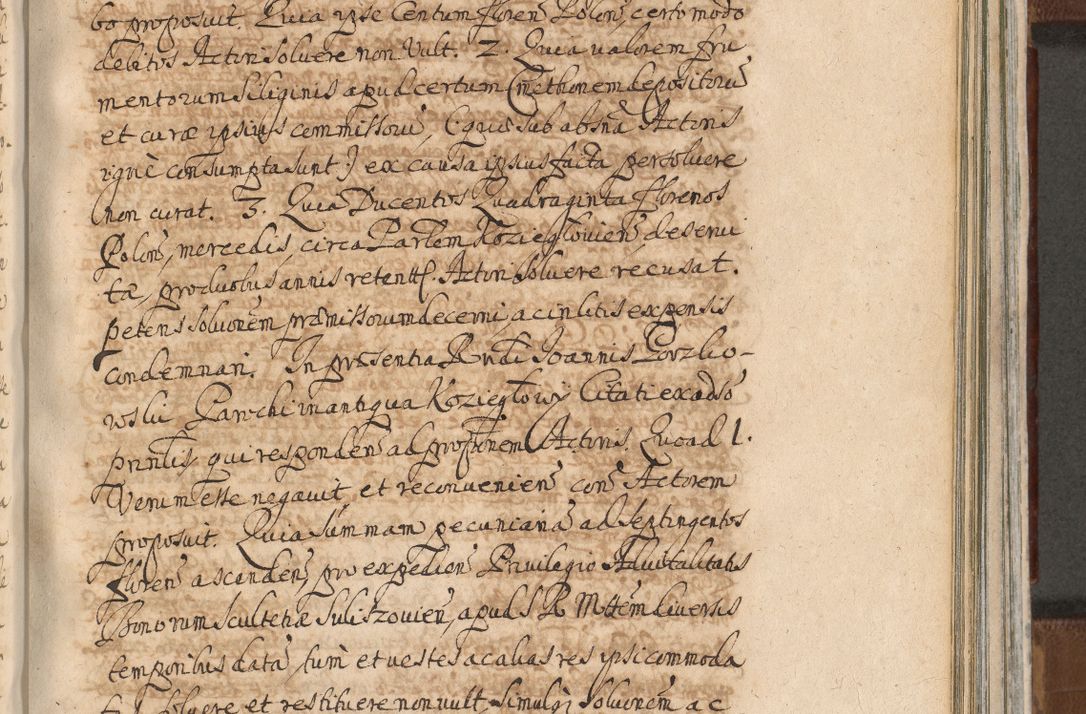 bo proposuit. Quia ipse Centum floren̄ Polon̄, certo modo
debitos Actori soluere non vult. 2. Quia valorem fru
mentorum siliginis apud certum Cmethonem depositorū
et curæ ipsius commissorū, (quæ sub absn̄a Actoris
igne consumpta sunt) ex causa ipsius facta persoluere
non curat. 3. Quia Ducentos Quadraginta florenos
Polon̄, mercedis, circa Partem Koziegłovien̄, deserui
tæ, pro duobus annis retent. Actori soluere recusat.
petens soluōnem præmissorum decerni, ac in litis expensis
condemnari. In præsentia Rndi Joannis
Parochi in antiqua Koziegłowy Citati ex adso
prīntis, qui responden̄ ad proptionem Actoris. Quoad 1.
Verum esse negauit et reconuenien̄ con̄ Actorem
proposuit. Quia summam pecuniariā ad septingentos
floren̄ ascenden̄, pro expedion̄ Priuilegio Aduitalitatis
Bonorum Scultetiæ Suliszouien̄, apud S. R. Mttem diuersis
temporibus datā, tum et vestes ac alias res ipsi commoda
soluere et restituere non vult. simulq̄ soluōnem ac